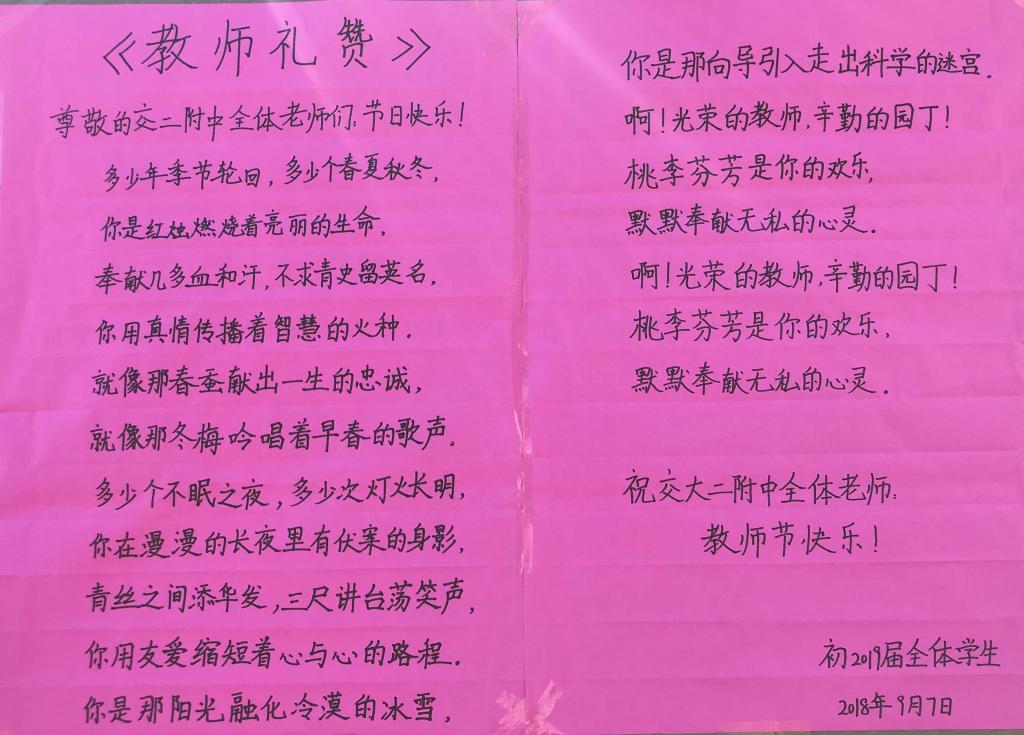 《教师礼赞》
尊敬的交二附中全体老师们:节日快乐!
多少年季节轮回,多少个春夏秋冬,
你是红烛燃烧着亮丽的生命,
奉献几多血和汗,不求青史留英名,
你用真情传播着智慧的火种.
就像那春蚕献出一生的忠诚,
就像那冬梅吟唱着早春的歌声.
多少个不眠之夜,多少次灯火长明,
你在漫漫的长夜里有伏案的身影,
青丝之间添华发,三尺讲台荡笑声,
你用友爱缩短着心与心的路程.
你是那阳光融化冷漠的冰雪,
你是那向导引入走出科学的迷宫.
啊!光荣的教师,辛勤的园丁!
桃李芬芳是你的欢乐,
默默奉献无私的心灵.
啊!光荣的教师,辛勤的园丁!
桃李芬芳是你的欢乐,
默默奉献无私的心灵.
祝交大二附中全体老师:
教师节快乐!
初2019届全体学生
2018年9月7日